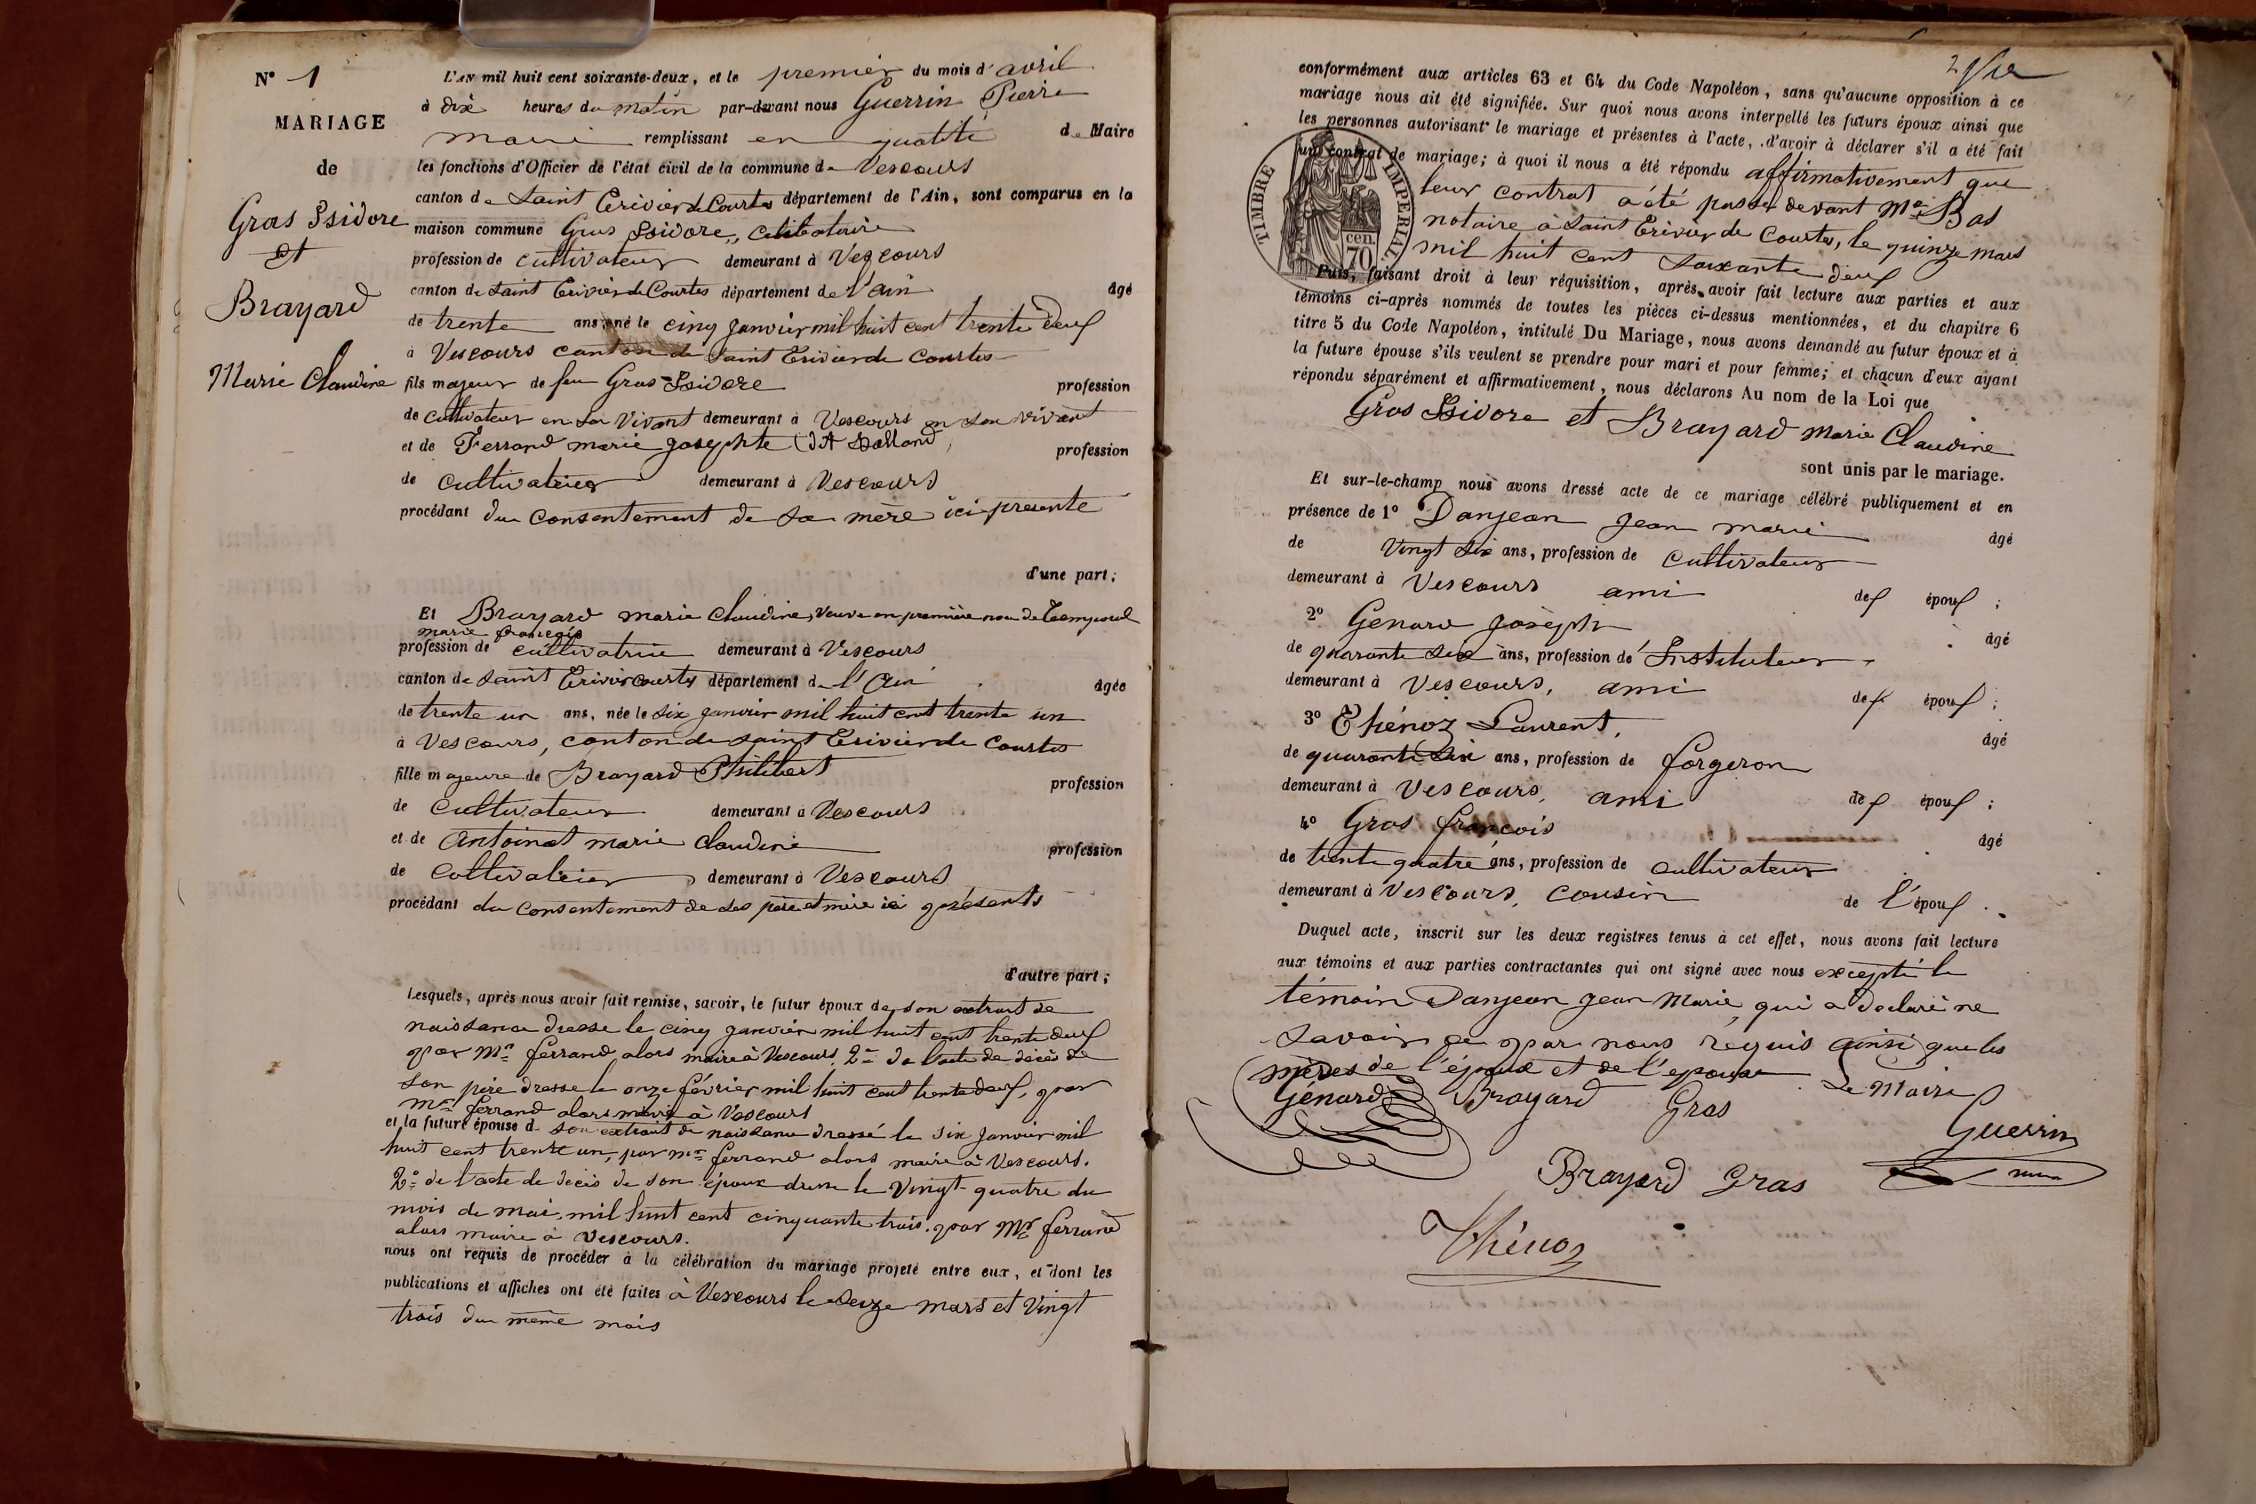 N° 1
MARIAGE
de
Gras Isidore
et
Brayard
Marie Claudine
L'AN mil huit cent soixante-deux, et le premier du mois d'avril
à dix heures du matin par-devant nous Guerrin Pierre
maire remplissant en qualité de Maire
les fonctions d'Officier de l'état civil de la commune de Vescours
canton de Saint Trivier de Courtes département de l'Ain, sont comparus en la
maison commune Gras Isidore, célibataire
profession de cultivateur demeurant à Vescours
canton de Saint Trivier de Courtes département de l'ain âgé
de trente ans, né le cinq janvier mil huit cent trente deux
à Vescours canton de Saint Trivier de Courtes
fils majeur de feu Gras Isidore profession
de cultivateur en son vivant demeurant à Vescours en son vivant
et de Ferrand marie josephte profession
de cultivateur demeurant à Vescours
procédant du consentement de sa mère ici presente
d'une part;
Et Brayard marie claudine, veuve en première noce de
marie
profession de cultivatrice demeurant à Vescours
canton de Saint Trivier Courtes département de l'Ain âgée
de trente un ans, née le six janvier mil huit cent trente un
à Vescours, canton de Saint Trivier de Courtes
fille majeure de Brayard Philibert profession
de cultivateur demeurant à Vescours
et de Antoinat marie claudine profession
de cultivateur demeurant à Vescours
procédant du consentement de ses père et mère ici présents
d'autre part;
Lesquels, après nous avoir fait remise, savoir, le futur époux de son extrait de
naissance dressé le cinq janvier mil huit cent trente deux
par Mr ferrand alors maire à Vescours, 2° de l'acte de décès de
son père dressé le onze février mil huit cent trente deux, par
Mr ferrand alors maire à Vescours
et la future épouse de son extrait de naissance dressé le six janvier mil
huit cent trente un, par mr ferrand alors maire à Vescours.
2° de l'acte de décès de son époux dressé le vingt-quatre du
mois de mai mil huit cent cinquante trois par Mr ferrand
alors maire à Vescours.
nous ont requis de procéder à la célébration du mariage projeté entre eux, et dont les
publications et affiches ont été faites à Vescours le seize mars et vingt
trois du même mois
conformément aux articles 63 et 64 du Code Napoléon, sans qu'aucune opposition à ce
mariage nous ait été signifiée. Sur quoi nous avons interpellé les futurs époux ainsi que
les personnes autorisant le mariage et présentes à l'acte, d'avoir à déclarer s'il a été fait
un contrat de mariage; à quoi il nous a été répondu affirmativement que
leur contrat a été passé devant Me Bas
notaire à Saint Trivier de Courtes, le quinze mars
mil huit cent soixante deux
TIMBRE IMPERIAL
cen. 70
Puis, faisant droit à leur réquisition, après avoir fait lecture aux parties et aux
témoins ci-après nommés de toutes les pièces ci-dessus mentionnées, et du chapitre 6
titre 5 du Code Napoléon, intitulé Du Mariage, nous avons demandé au futur époux et à
la future épouse s'ils veulent se prendre pour mari et pour femme; et chacun d'eux ayant
répondu séparément et affirmativement, nous déclarons Au nom de la Loi que
Gras Isidore et Brayard Marie Claudine
sont unis par le mariage.
Et sur-le-champ nous avons dressé acte de ce mariage célébré publiquement et en
présence de 1° Danjean jean marie âgé
de vingt six ans, profession de cultivateur
demeurant à Vescours ami des époux;
2° Genard joseph âgé
de quarante six ans, profession de Instituteur
demeurant à Vescours, ami des époux;
3° Thénoz Laurent, âgé
de quarante six ans, profession de forgeron
demeurant à Vescours, ami des époux;
4° Gras françois âgé
de trente quatre ans, profession de cultivateur
demeurant à Vescours, cousin de l'époux.
Duquel acte, inscrit sur les deux registres tenus à cet effet, nous avons fait lecture
aux témoins et aux parties contractantes qui ont signé avec nous excepté le
témoin Danjean jean Marie, qui a déclaré ne
savoir de par nous requis ainsi que les
mères de l'époux et de l'épouse Le Maire
Génard Brayard Gras
Guerrin
Brayard Gras
Thénoz